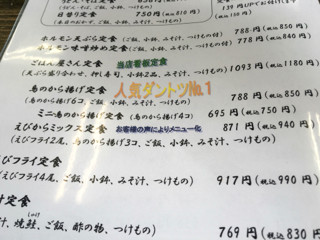 うどん・そば定食
(うどん、そば、ご飯、小鉢、つけもの)
日替り定食 750円(税込810円)
139円UPでお付けいます
(税込150円)
ホルモン天ぷら定食(ご飯、小鉢、みそ汁、つけもの) 788円(税込850円)
ホルモン味噌炒め定食(ご飯、小鉢、みそ汁、つけもの) 778円(税込840円)
ごはん屋さん定食 当店看板定食 1093円(税込1180円)
(天ぷら盛り合わせ、押し寿司、小鉢2品、みそ汁、つけもの)
鳥のから揚げ定食 人気ダントツNo.1 788円(税込850円)
(鳥のから揚げ6コ、ご飯、小鉢、みそ汁、つけもの)
ミニ鳥のから揚げ定食(から揚げ4コ) 695円(税込750円)
えびからミックス定食 お客様の声によりメニュー化 871円(税込940円)
(えびフライ2尾、鳥のから揚げ3コ、ご飯、小鉢、みそ汁、つけもの)
びフライ定食 917円(税込990円)
(えびフライ4尾、ご飯、小鉢、みそ汁、つけもの)
定食 769円(税込830円)
汁、焼鮭、ご飯、酢の物、つけもの)